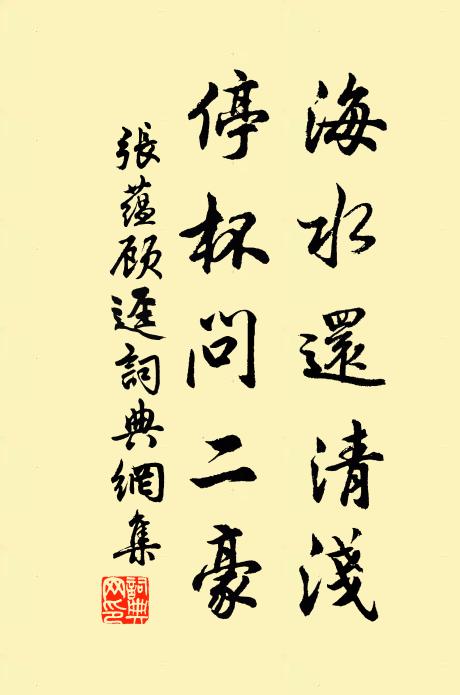 海水還清淺
停杯問二豪
張蘊顧逕詞典網集
詞典网印